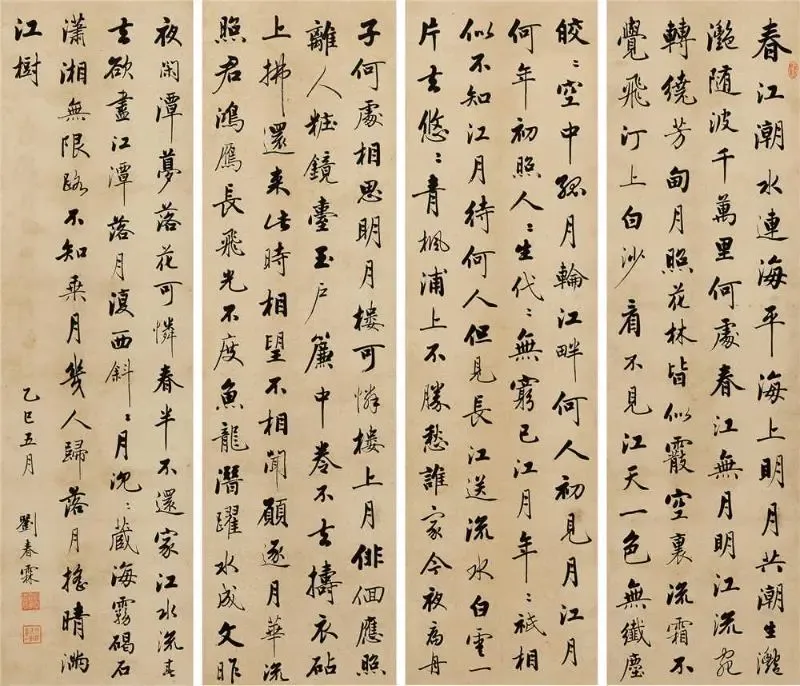 春江潮水連海平海上明月共潮生灩
灩隨波千萬里何處春江無月明江流宛
轉繞芳甸月照花林皆似霰空裏流霜不
覺飛汀上白沙看不見江天一色無纖塵
皎〻空中孤月輪江畔何人初見月江月
何年初照人〻生代〻無窮已江月年〻祇相
似不知江月待何人但見長江送流水白雲一
片去悠〻青楓浦上不勝愁誰家今夜扁舟
子何處相思明月樓可憐樓上月徘徊應照
離人粧鏡臺玉戶簾中卷不去擣衣砧
上拂還來此時相望不相聞願逐月華流
照君鴻鴈長飛光不度魚龍潛躍水成文昨
夜閑潭夢落花可憐春半不還家江水流春
去欲盡江潭落月復西斜〻月沉〻藏海霧碣石
瀟湘無限路不知乘月幾人歸落月搖晴滿
江樹
乙巳五月 劉春霖